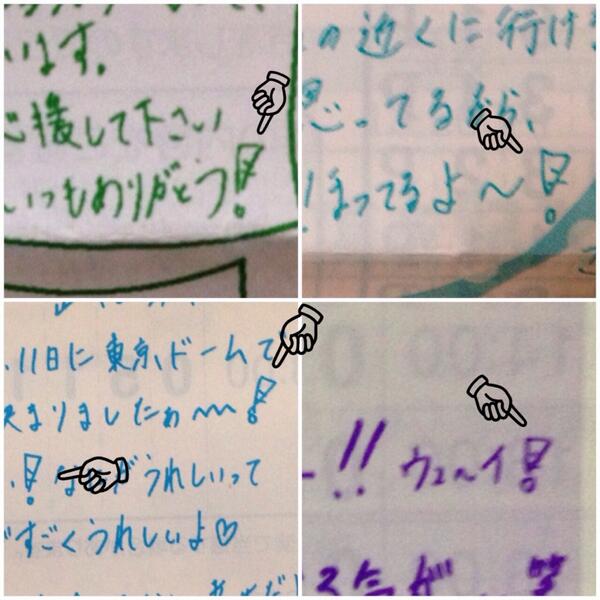 います。
応援して下さい
いつもありがとう!
の近くに行ける
思ってるから、
まってるよ〜!
11日に東京ドームで
決まりましたわ〜!
! なにがうれしいって
すごくうれしいよ♡
!! ウェ〜イ!
笑